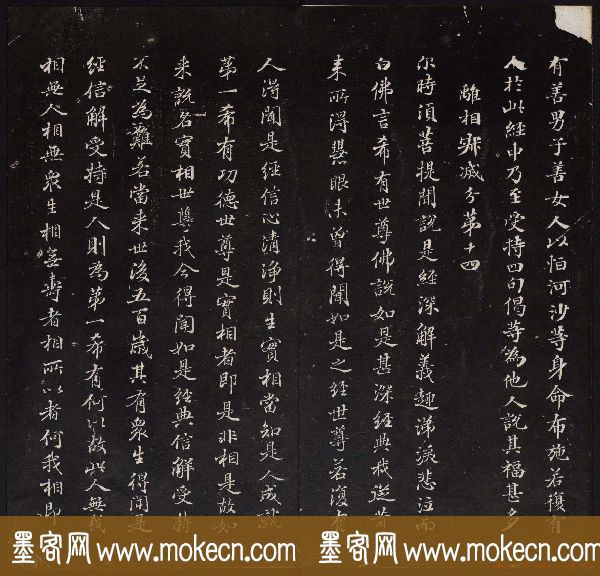 有善男子善女人以恒河沙等身命布施若復有
人於此經中乃至受持四句偈等為他人說其福甚多
離相寂滅分第十四
尒時須菩提聞說是經深解義趣涕淚悲泣而
白佛言希有世尊佛說如是甚深經典我從昔
來所得慧眼未曾得聞如是之經世尊若復有
人得聞是經信心清淨則生實相當知是人成就
第一希有功德世尊是實相者即是非相是故如
来說名實相世尊我今得聞如是經典信解受持
不足為難若當来世後五百歲其有衆生得聞是
經信解受持是人則為第一希有何以故此人無我
相無人相無衆生相無壽者相所以者何我相即
墨客网 www.mokecn.com 墨客网 www.mokecn.com